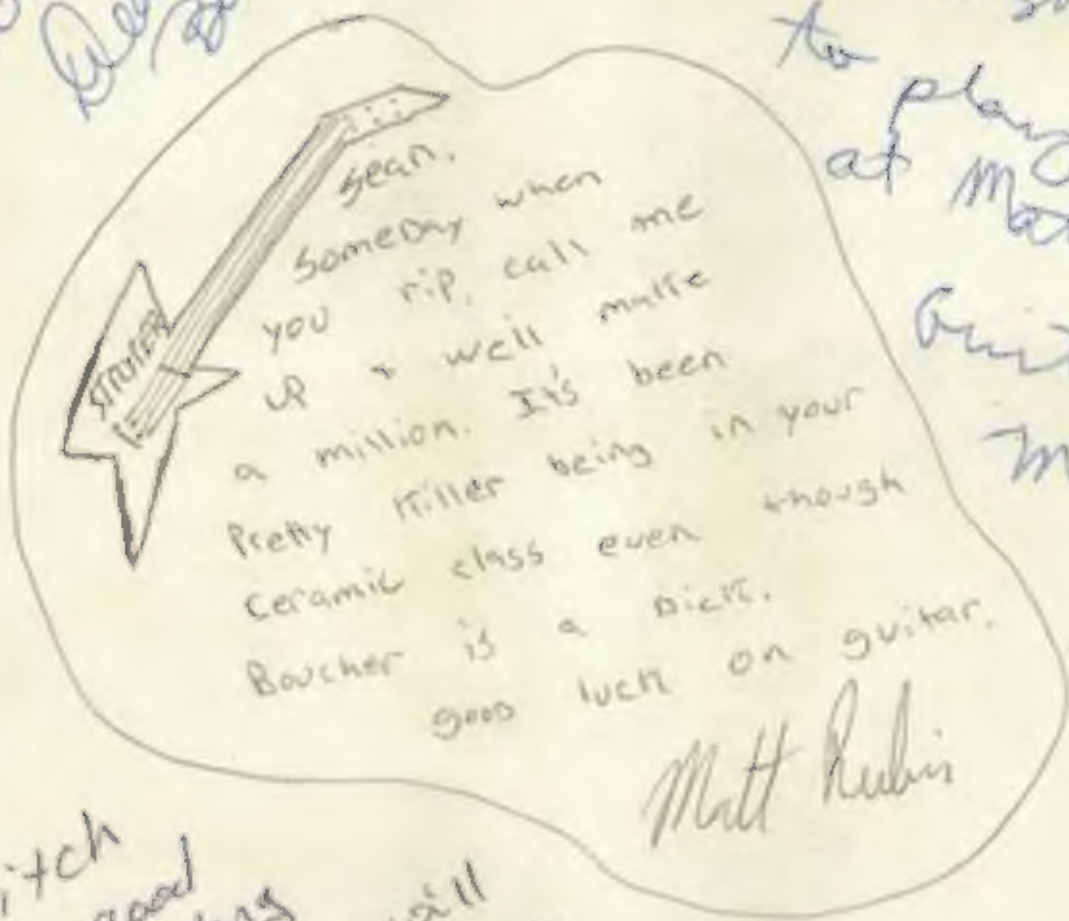 to
play
at
Sean,
Someday when
you rip, call me
up & we'll make
a million. It's been
Pretty Killer being in your
Ceramic class even though
Boucher is a Dick.
good luck on guitar.
Matt Rubin
itch
good
will